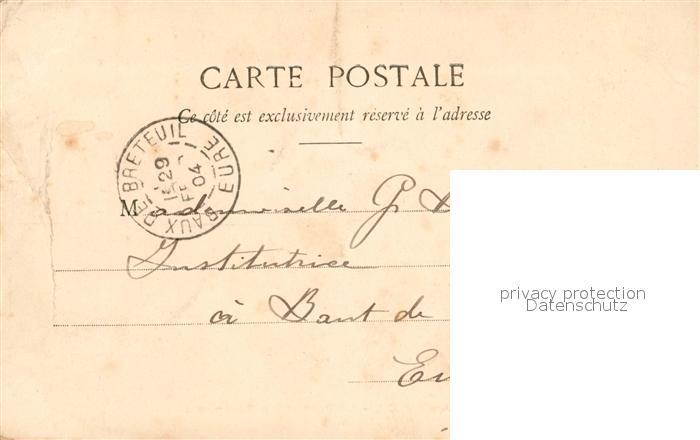 CARTE POSTALE
Ce côté est exclusivement réservé à l'adresse
BAUX DE BRETEUIL EURE
29
04
Mademoiselle G
Institutrice
à Baux de
Eu
privacy protection
Datenschutz